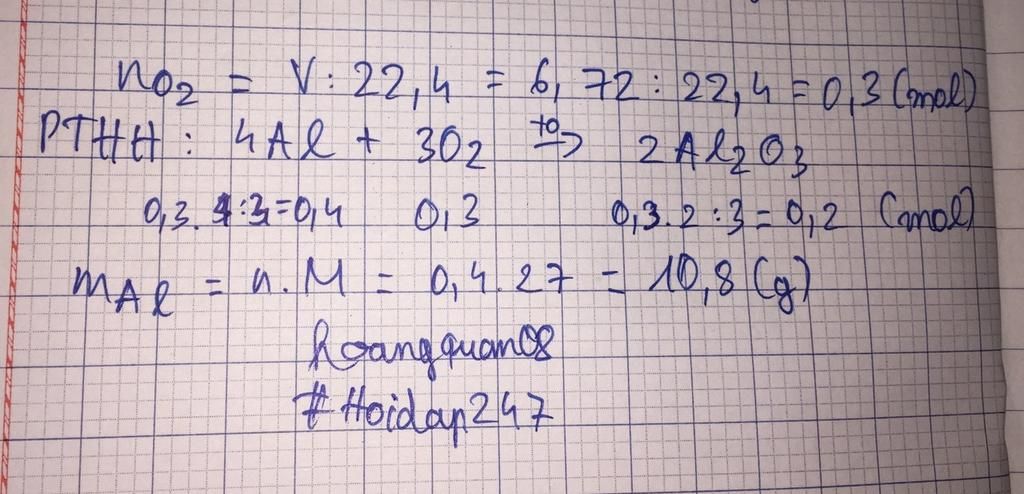 nO2 = V : 22,4 = 6,72 : 22,4 = 0,3 (mol)
PTHH : 4Al + 3O2 t0→ 2Al2O3
0,3.4:3=0,4 0,3 0,3.2:3=0,2 (mol)
mAl = n.M = 0,4.27 = 10,8 (g)
hoangquan08
#Hoidap247